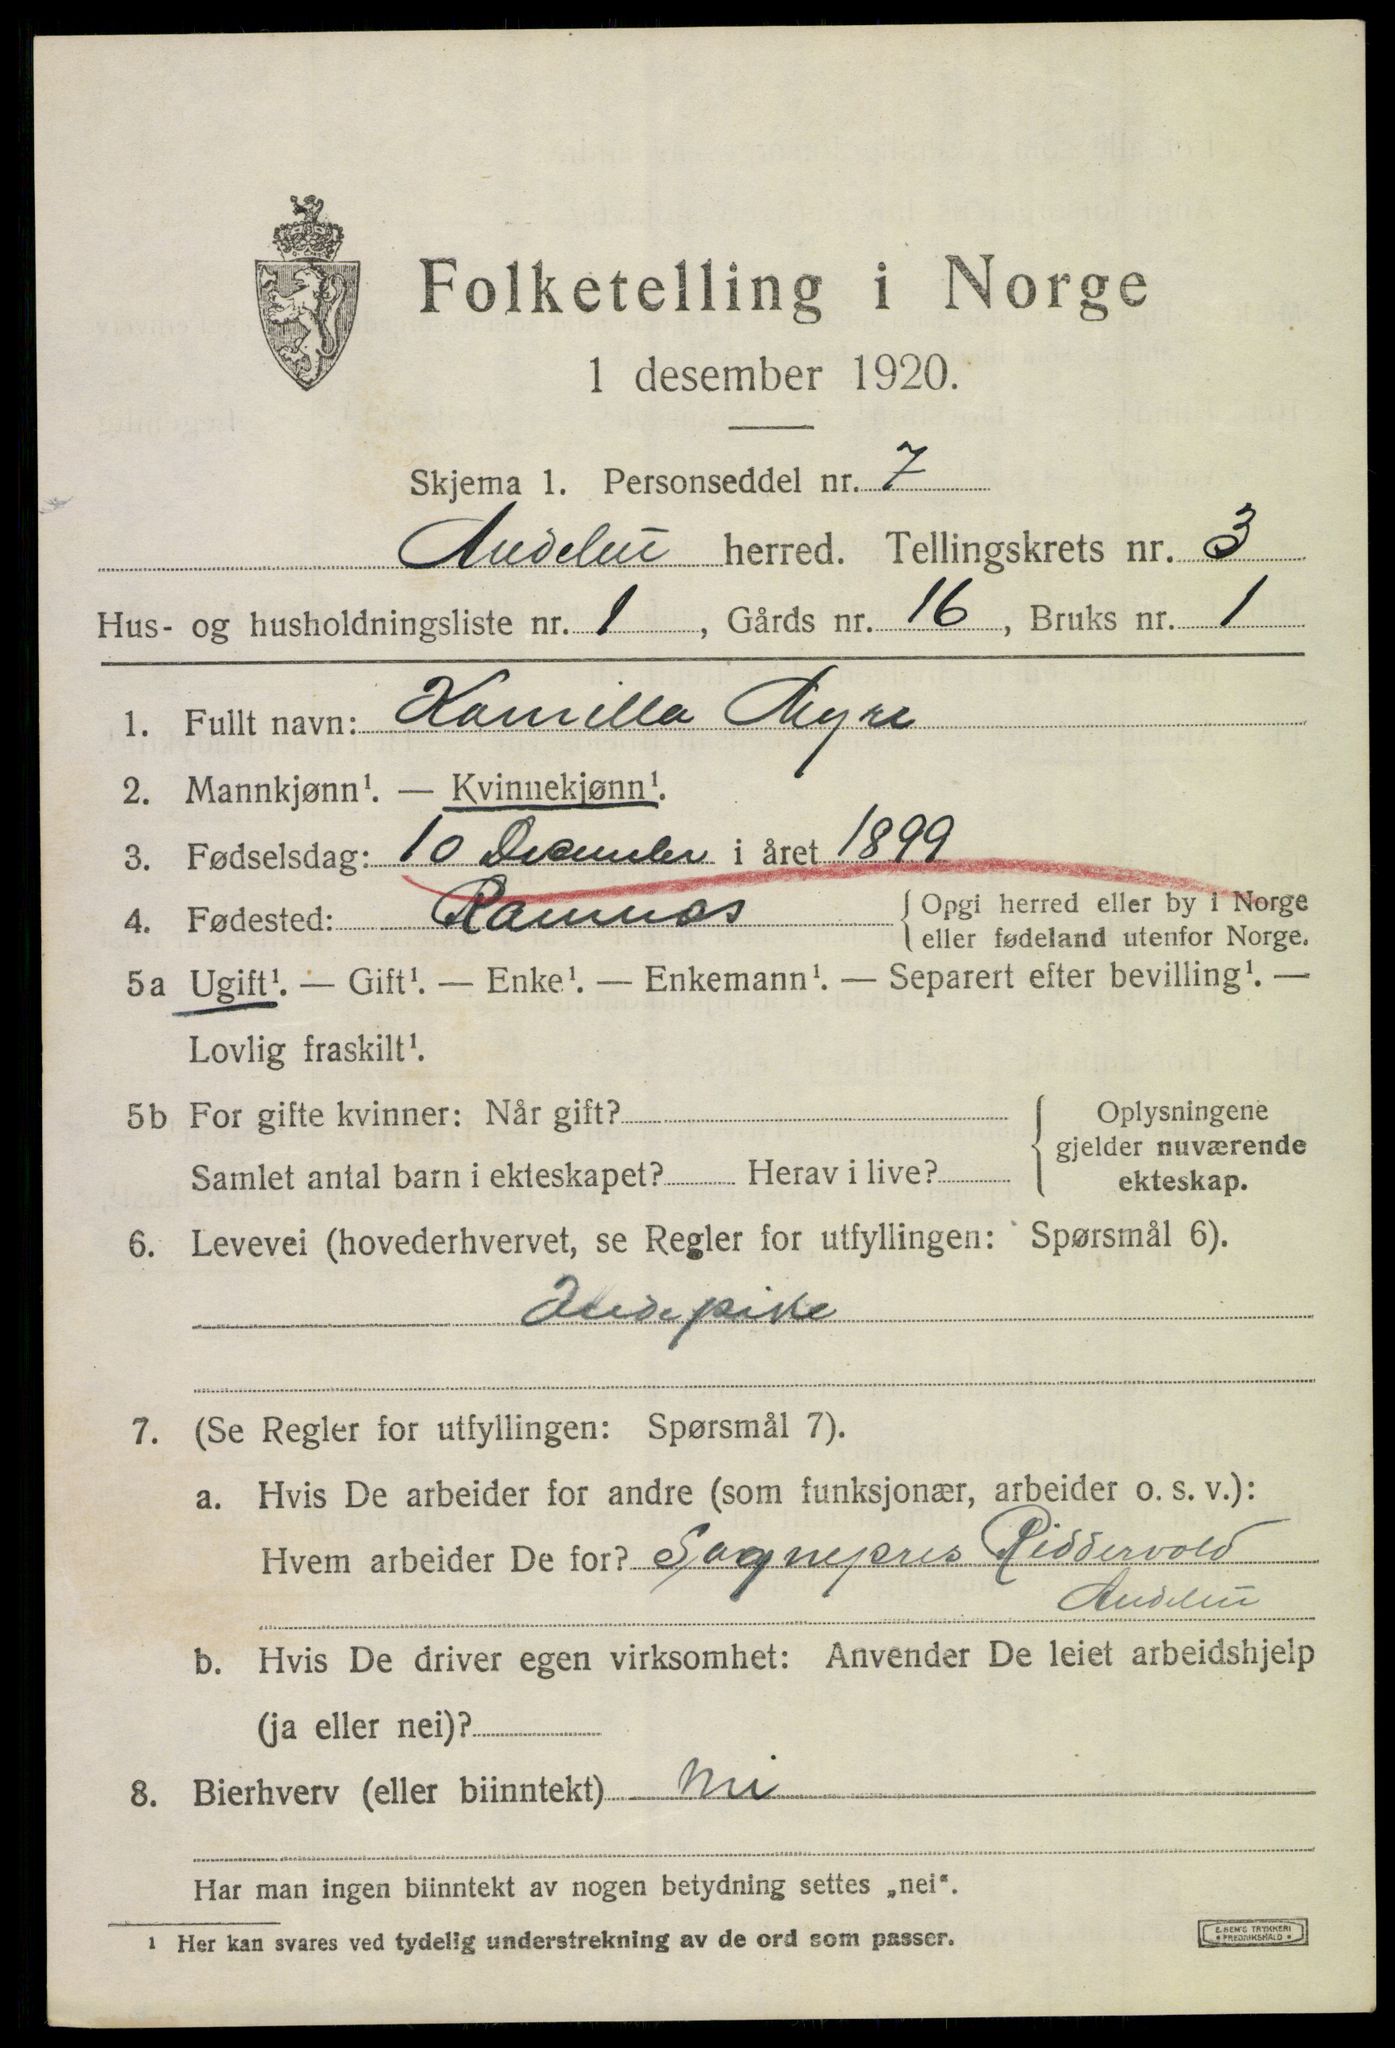 Folketelling i Norge
1 desember 1920.
Skjema 1. Personseddel nr. 7
Andebu herred. Tellingskrets nr. 3
Hus- og husholdningsliste nr. 1, Gårds nr. 16, Bruks nr. 1
1. Fullt navn: Kamilla Myre
2. Mannkjønn¹. — Kvinnekjønn¹.
3. Fødselsdag: 10 December i året 1899
4. Fødested: Ramnes { Opgi herred eller by i Norge
eller fødeland utenfor Norge.
5a Ugift¹. — Gift¹. — Enke¹. — Enkemann¹. — Separert efter bevilling¹. —
Lovlig fraskilt¹.
5b For gifte kvinner: Når gift? { Oplysningene
gjelder nuværende
Samlet antal barn i ekteskapet? Herav i live? ekteskap.
6. Levevei (hovederhvervet, se Regler for utfyllingen: Spørsmål 6).
Indepike
7. (Se Regler for utfyllingen: Spørsmål 7).
a. Hvis De arbeider for andre (som funksjonær, arbeider o. s. v.):
Hvem arbeider De for? Sognepres Riddervold
Andebu
b. Hvis De driver egen virksomhet: Anvender De leiet arbeidshjelp
(ja eller nei)?
8. Bierhverv (eller biinntekt) nei
Har man ingen biinntekt av nogen betydning settes „nei“.
¹ Her kan svares ved tydelig understrekning av de ord som passer.
E. SEM'S TRYKKERI
FREDRIKSHALD